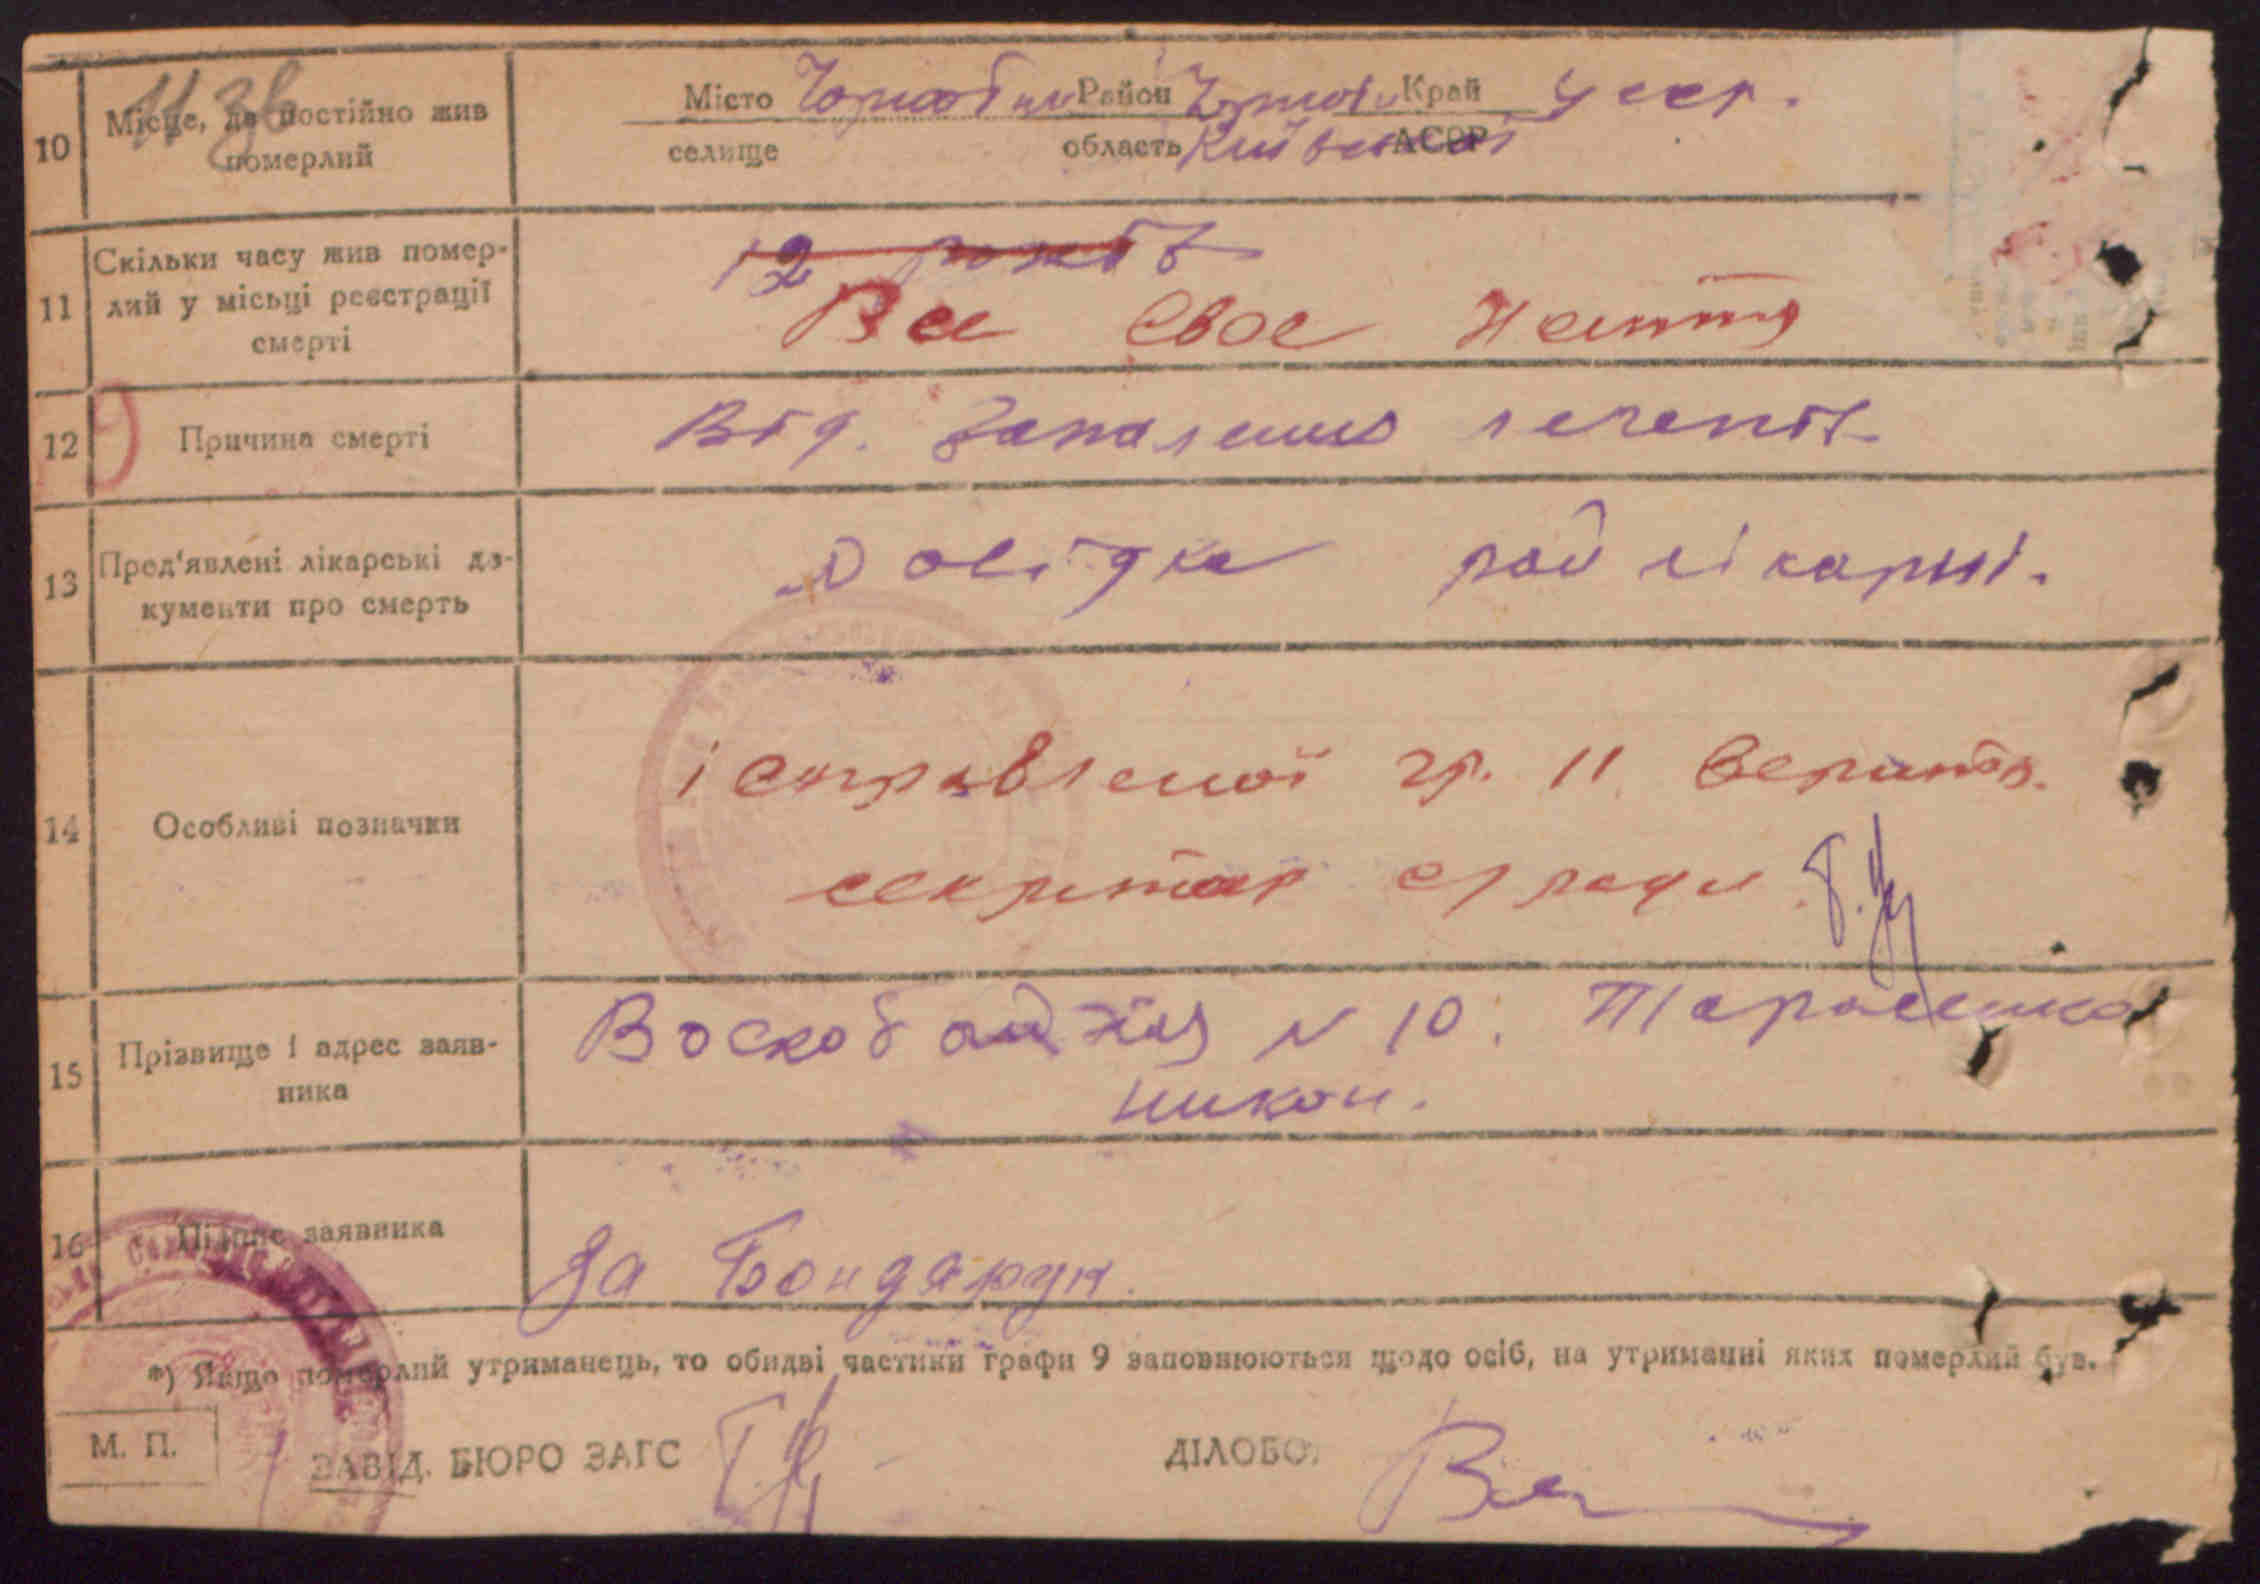 10 Місце, де постійно жив померлий
11 зв
Місто Чорнобиль Район Чорноб. Край УССР.
селище область Київської АСРР
11 Скільки часу жив помер-
лий у місці реєстрації
смерті
12 років
Все своє життя
12 Причина смерті
Від. Запалення легенів
13 Пред'явлені лікарські до-
кументи про смерть
Довідка рай лікарні.
14 Особливі позначки
ісправленої гр. 11 верить.
секритар с/ради
15 Прізвище і адрес заяв-
ника
N 10. Тарасенко
Никон.
16 Підпис заявника
За Бондарук.
*) Якщо померлий утриманець, то обидві частини графи 9 заповнюються щодо осіб, на утриманні яких померлий був.
М. П.
ЗАВІД. БЮРО ЗАГС
ДІЛОВОД